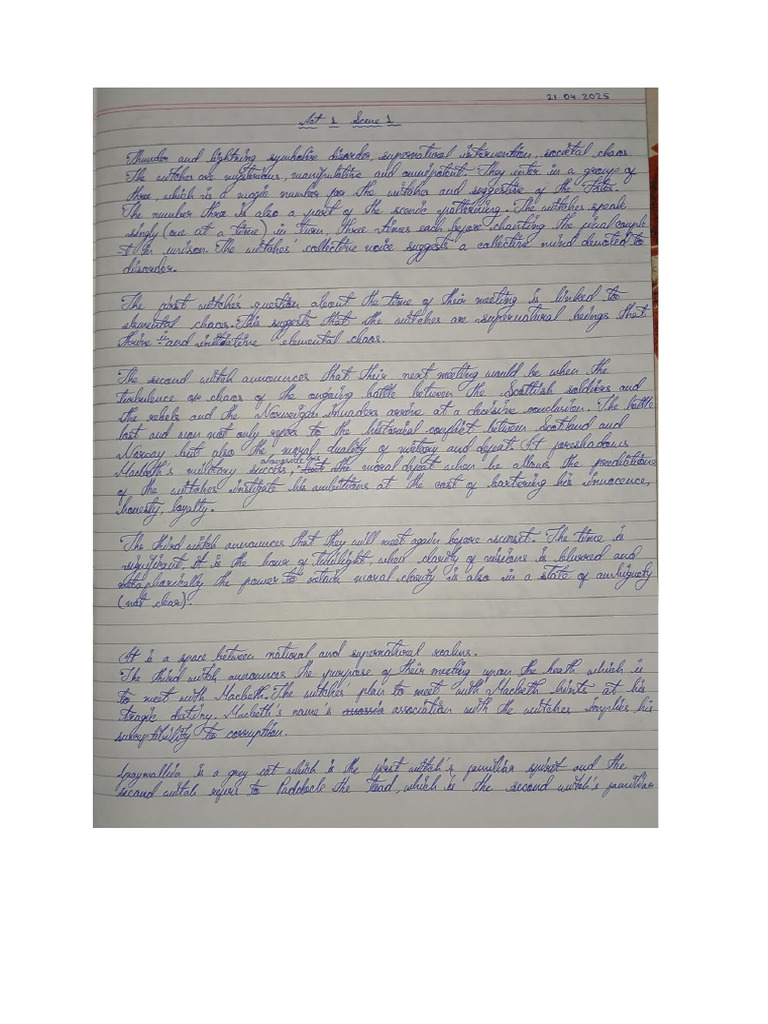 21.04.2025
Act 1 Scene 1
Thunder and lightning symbolise disorder, supernatural intervention, societal chaos.
The witches are mysterious, manipulative and omnipotent. They enter in a group of
three, which is a magic number for the witches and suggestive of the Fates.
The number three is also a part of the scenic patterning. The witches speak
singly (one at a time) in turn, three times each before chanting the final couple
t in unison. The witches' collective voice suggests a collective mind devoted to
disorder.
The first witch's question about the time of their meeting is linked to
elemental chaos. This suggests that the witches are supernatural beings that
thrive in and initiative elemental chaos.
The second witch announces that their next meeting would be when the
turbulence or chaos of the ongoing battle between the Scottish soldiers and
the rebels and the Norweigian invaders arrive at a decisive conclusion. The battle
lost and won not only refer to the historical conflict between Scotland and
Norway but also the moral duality of victory and defeat. It foreshadows
Macbeth's military success, alongside his moral defeat when he allows the predictions
of the witches instigate his ambitions at the cost of bartering his innocence,
honesty, loyalty.
The third witch announces that they will meet again before sunset. The time is
significant. It is the hour of twilight, when clarity of visions is blurred and
metaphorically the power to retain moral clarity is also in a state of ambiguity
(not clear).
It is a space between natural and supernatural realms.
The third witch announces the purpose of their meeting upon the heath which is
to meet with Macbeth. The witches' plan to meet with Macbeth hints at his
tragic destiny. Macbeth's name's association with the witches implies his
susceptibility to corruption.
Graymallkin is a grey cat which is the first witch's familiar spirit and the
second witch refers to Paddock the toad, which is the second witch's familiar